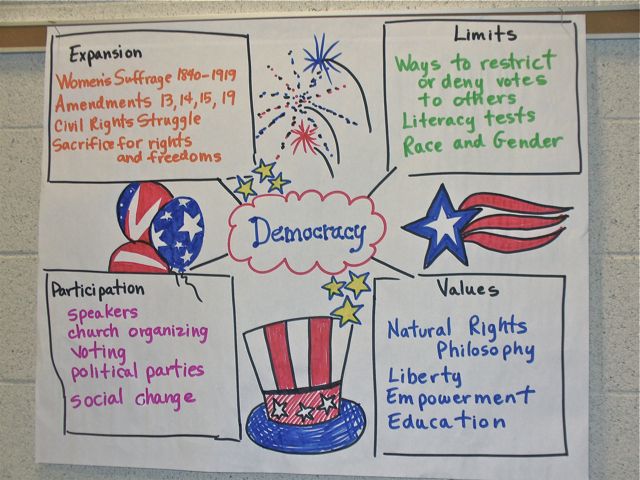 Expansion
Women's Suffrage 1840-1919
Amendments 13, 14, 15, 19
Civil Rights Struggle
Sacrifice for rights
and freedoms
Limits
Ways to restrict
or deny votes
to others
Literacy tests
Race and Gender
Democracy
Participation
speakers
church organizing
voting
political parties
social change
Values
Natural Rights
Philosophy
Liberty
Empowerment
Education